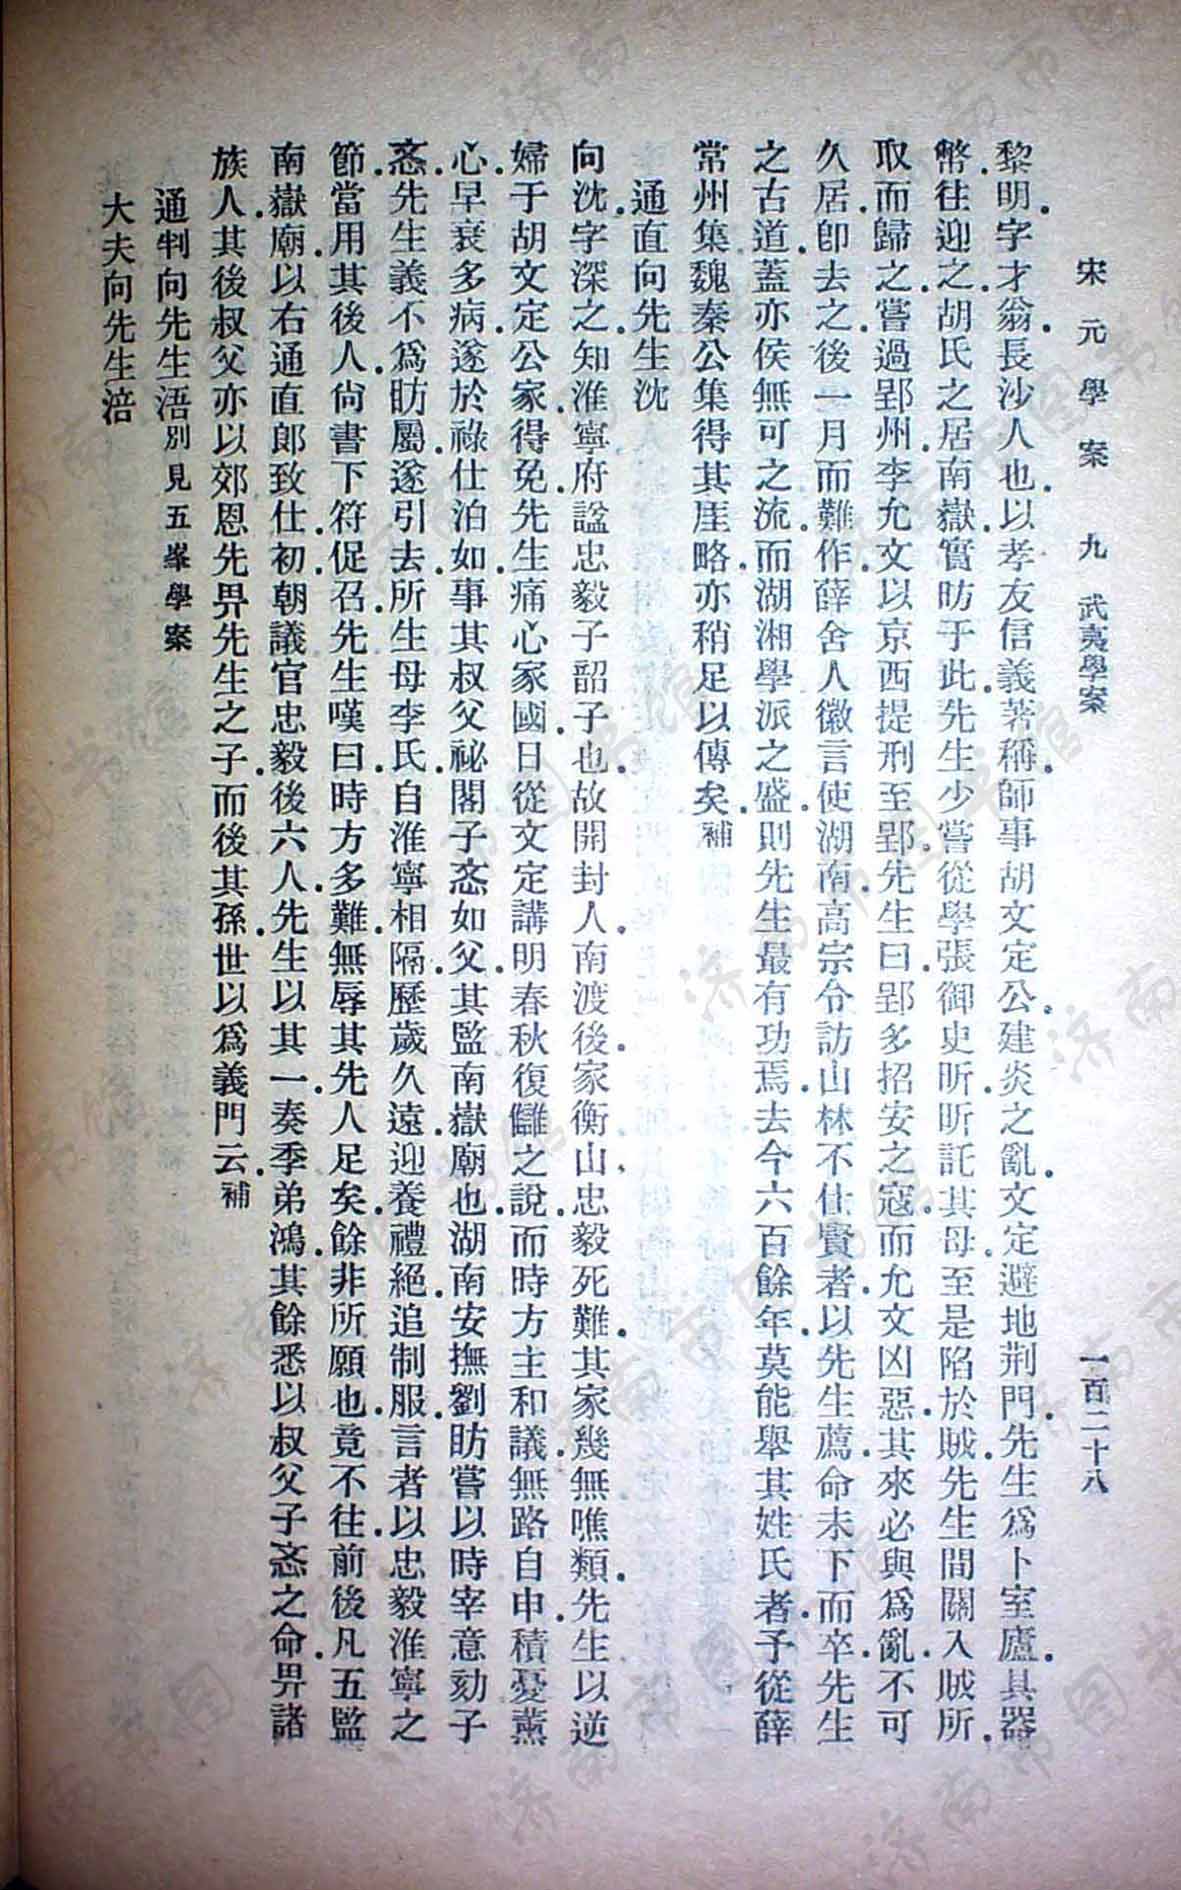 宋元學案　九　武夷學案　一百二十八
黎明.字才翁.長沙人也.以孝友信義著稱.師事胡文定公.建炎之亂.文定避地荆門.先生爲卜室廬.具器
幣.往迎之.胡氏之居南嶽.實昉于此.先生少嘗從學張御史昕.昕託其母.至是陷於賊.先生間關入賊所.
取而歸之.嘗過郢州.李允文以京西提刑至郢.先生曰.郢多招安之寇.而允文凶惡.其來必與爲亂.不可
久居.卽去之.後一月而難作.薛舍人徽言使湖南.高宗令訪山林不仕賢者.以先生薦.命未下而卒.先生
之古道.蓋亦侯無可之流.而湖湘學派之盛.則先生最有功焉.去今六百餘年.莫能舉其姓氏者.予從薛
常州集魏秦公集得其厓略.亦稍足以傳矣.補
通直向先生沈
向沈.字深之.知淮寧府諡忠毅子韶子也.故開封人.南渡後.家衡山.忠毅死難.其家幾無噍類.先生以逆
婦于胡文定公家.得免.先生痛心家國.日從文定講明春秋復讎之說.而時方主和議.無路自申.積憂薰
心.早衰多病.遂於祿仕泊如.事其叔父祕閣子忞如父.其監南嶽廟也.湖南安撫劉昉嘗以時宰意劾子
忞.先生義不爲昉屬.遂引去.所生母李氏.自淮寧相隔.歷歲久遠.迎養禮絕.追制服.言者以忠毅淮寧之
節.當用其後人.尙書下符促召.先生嘆曰.時方多難.無辱其先人足矣.餘非所願也.竟不往.前後凡五監
南嶽廟.以右通直郎致仕.初.朝議官忠毅後六人.先生以其一奏季弟鴻.其餘悉以叔父子忞之命.畀諸
族人.其後叔父亦以郊恩先畀先生之子.而後其孫.世以爲義門云.補
通判向先生浯別見五峯學案
大夫向先生涪